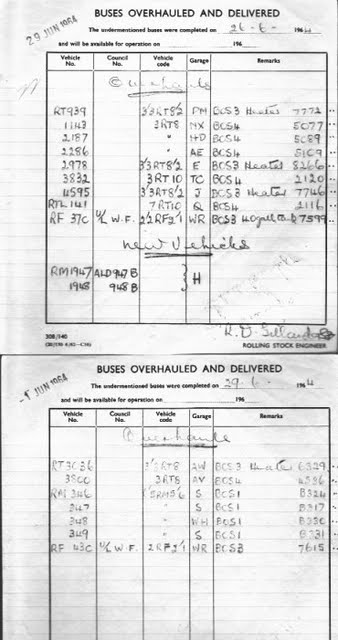 29 JUN 1964
BUSES OVERHAULED AND DELIVERED
The undermentioned buses were completed on 26-6- 1964
and will be available for operation on 196
Vehicle No. Council No. Vehicle code Garage Remarks
Overhauls
RT939 3/3RT8/2 PM BCS3 Heater 7772
1143 3RT8 NX BCS4 5077
2187 " HD BCS4 5089
2286 " AE BCS4 5109
2978 3/3RT8/2 E BCS3 Heater 8266
3832 3RT10 TC BCS4 2120
4595 3/3RT8/2 J BCS3 Heater 7746
RTL 141 7RT10 Q BCS4 2116
RF 37C U/L W.F. 2/2RF2/1 WR BCS3 7599
New Vehicles
RM1947 ALD947B H
1948 948B
308/140
ROLLING STOCK ENGINEER
JUN 1964
BUSES OVERHAULED AND DELIVERED
The undermentioned buses were completed on 29-6- 1964
and will be available for operation on 196
Vehicle No. Council No. Vehicle code Garage Remarks
Overhauls
RT3036 3/3RT8 AW BCS3 Heater 6329
3800 3RT8 AV BCS4 4996
RM 346 S BCS1 B324
347 " S BCS1 B317
348 " WH BCS1 B330
349 " S BCS1 B331
RF 43C U/L W.F. 2RF2/1 WR BCS3 7615